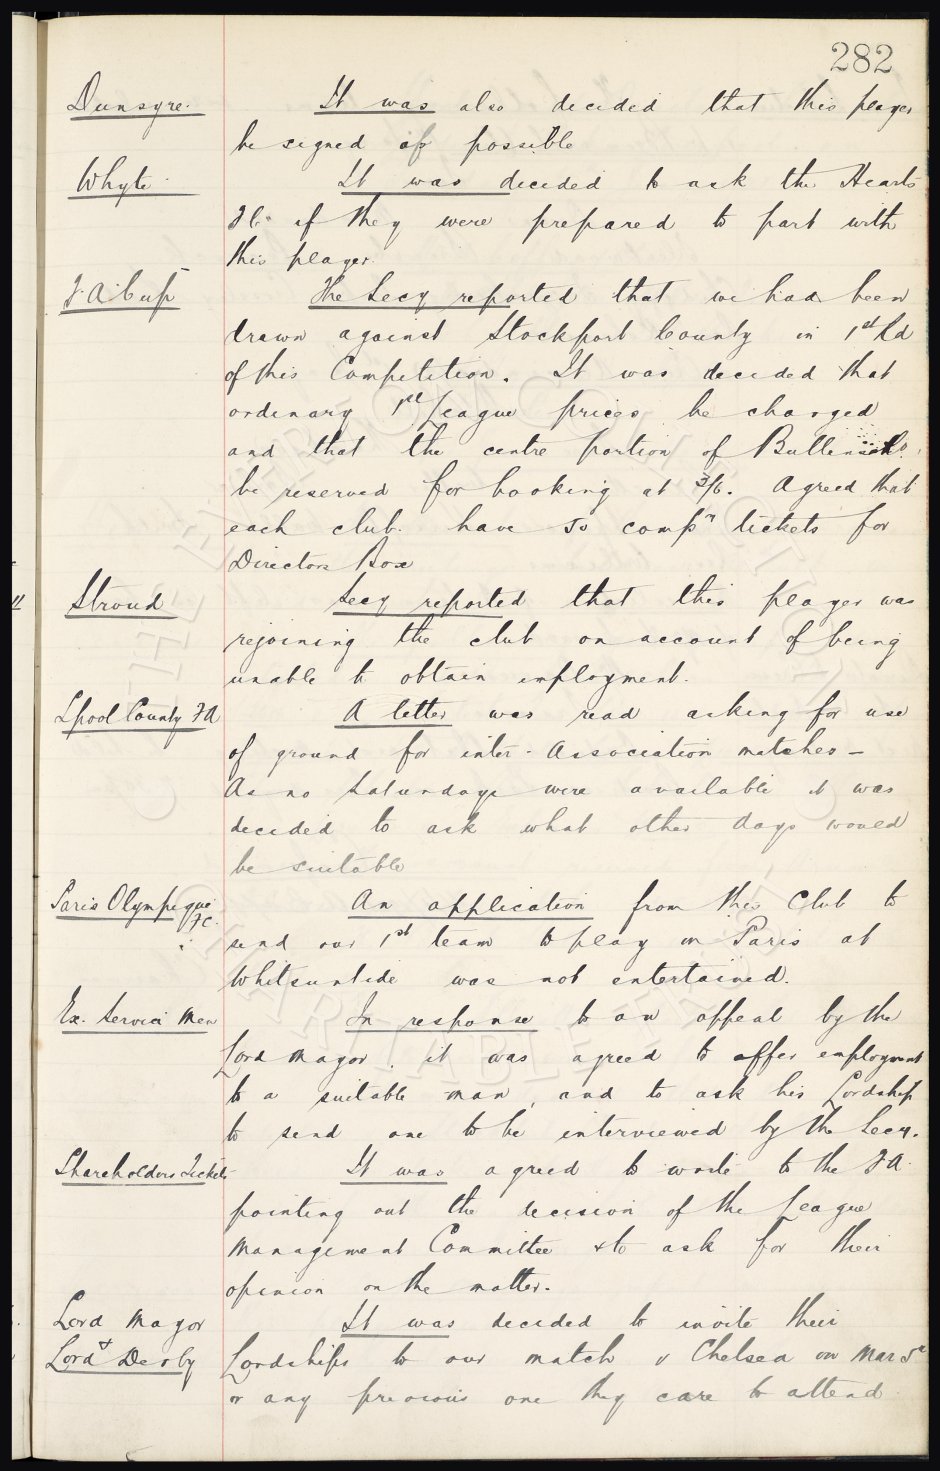 282
Dunsyre. It was also decided that this player
be signed if possible
Whyte. It was decided to ask the Hearts
F.C. if they were prepared to part with
this player.
F.A. Cup The Secy reported that we had been
drawn against Stockport County in 1st Rd
of this Competition. It was decided that
ordinary 1st League prices be charged
and that the centre portion of Bullens Rd
be reserved for booking at 3/6. Agreed that
each club have 50 compy tickets for
Directors Box
Stroud Secy reported that this player was
rejoining the club on account of being
unable to obtain employment.
Lpool County FA A letter was read asking for use
of ground for inter-Association matches —
As no Saturdays were available it was
decided to ask what other days would
be suitable
Paris Olympique FC. An application from this Club to
send our 1st team to play in Paris at
Whitsuntide was not entertained.
Ex. Service Men In response to an appeal by the
Lord Mayor, it was agreed to offer employment
to a suitable man, and to ask his Lordship
to send one to be interviewed by the Secy.
Shareholders Tickets It was agreed to write to the FA.
pointing out the decision of the League
Management Committee & to ask for their
opinion on the matter.
Lord Mayor It was decided to invite their
& Lord Derby Lordships to our match v Chelsea on Mar 5th
or any previous one they care to attend
THE EVERTON COLLECTION CHARITABLE TRUST